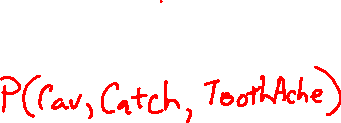 P(Cav, Catch, ToothAche)